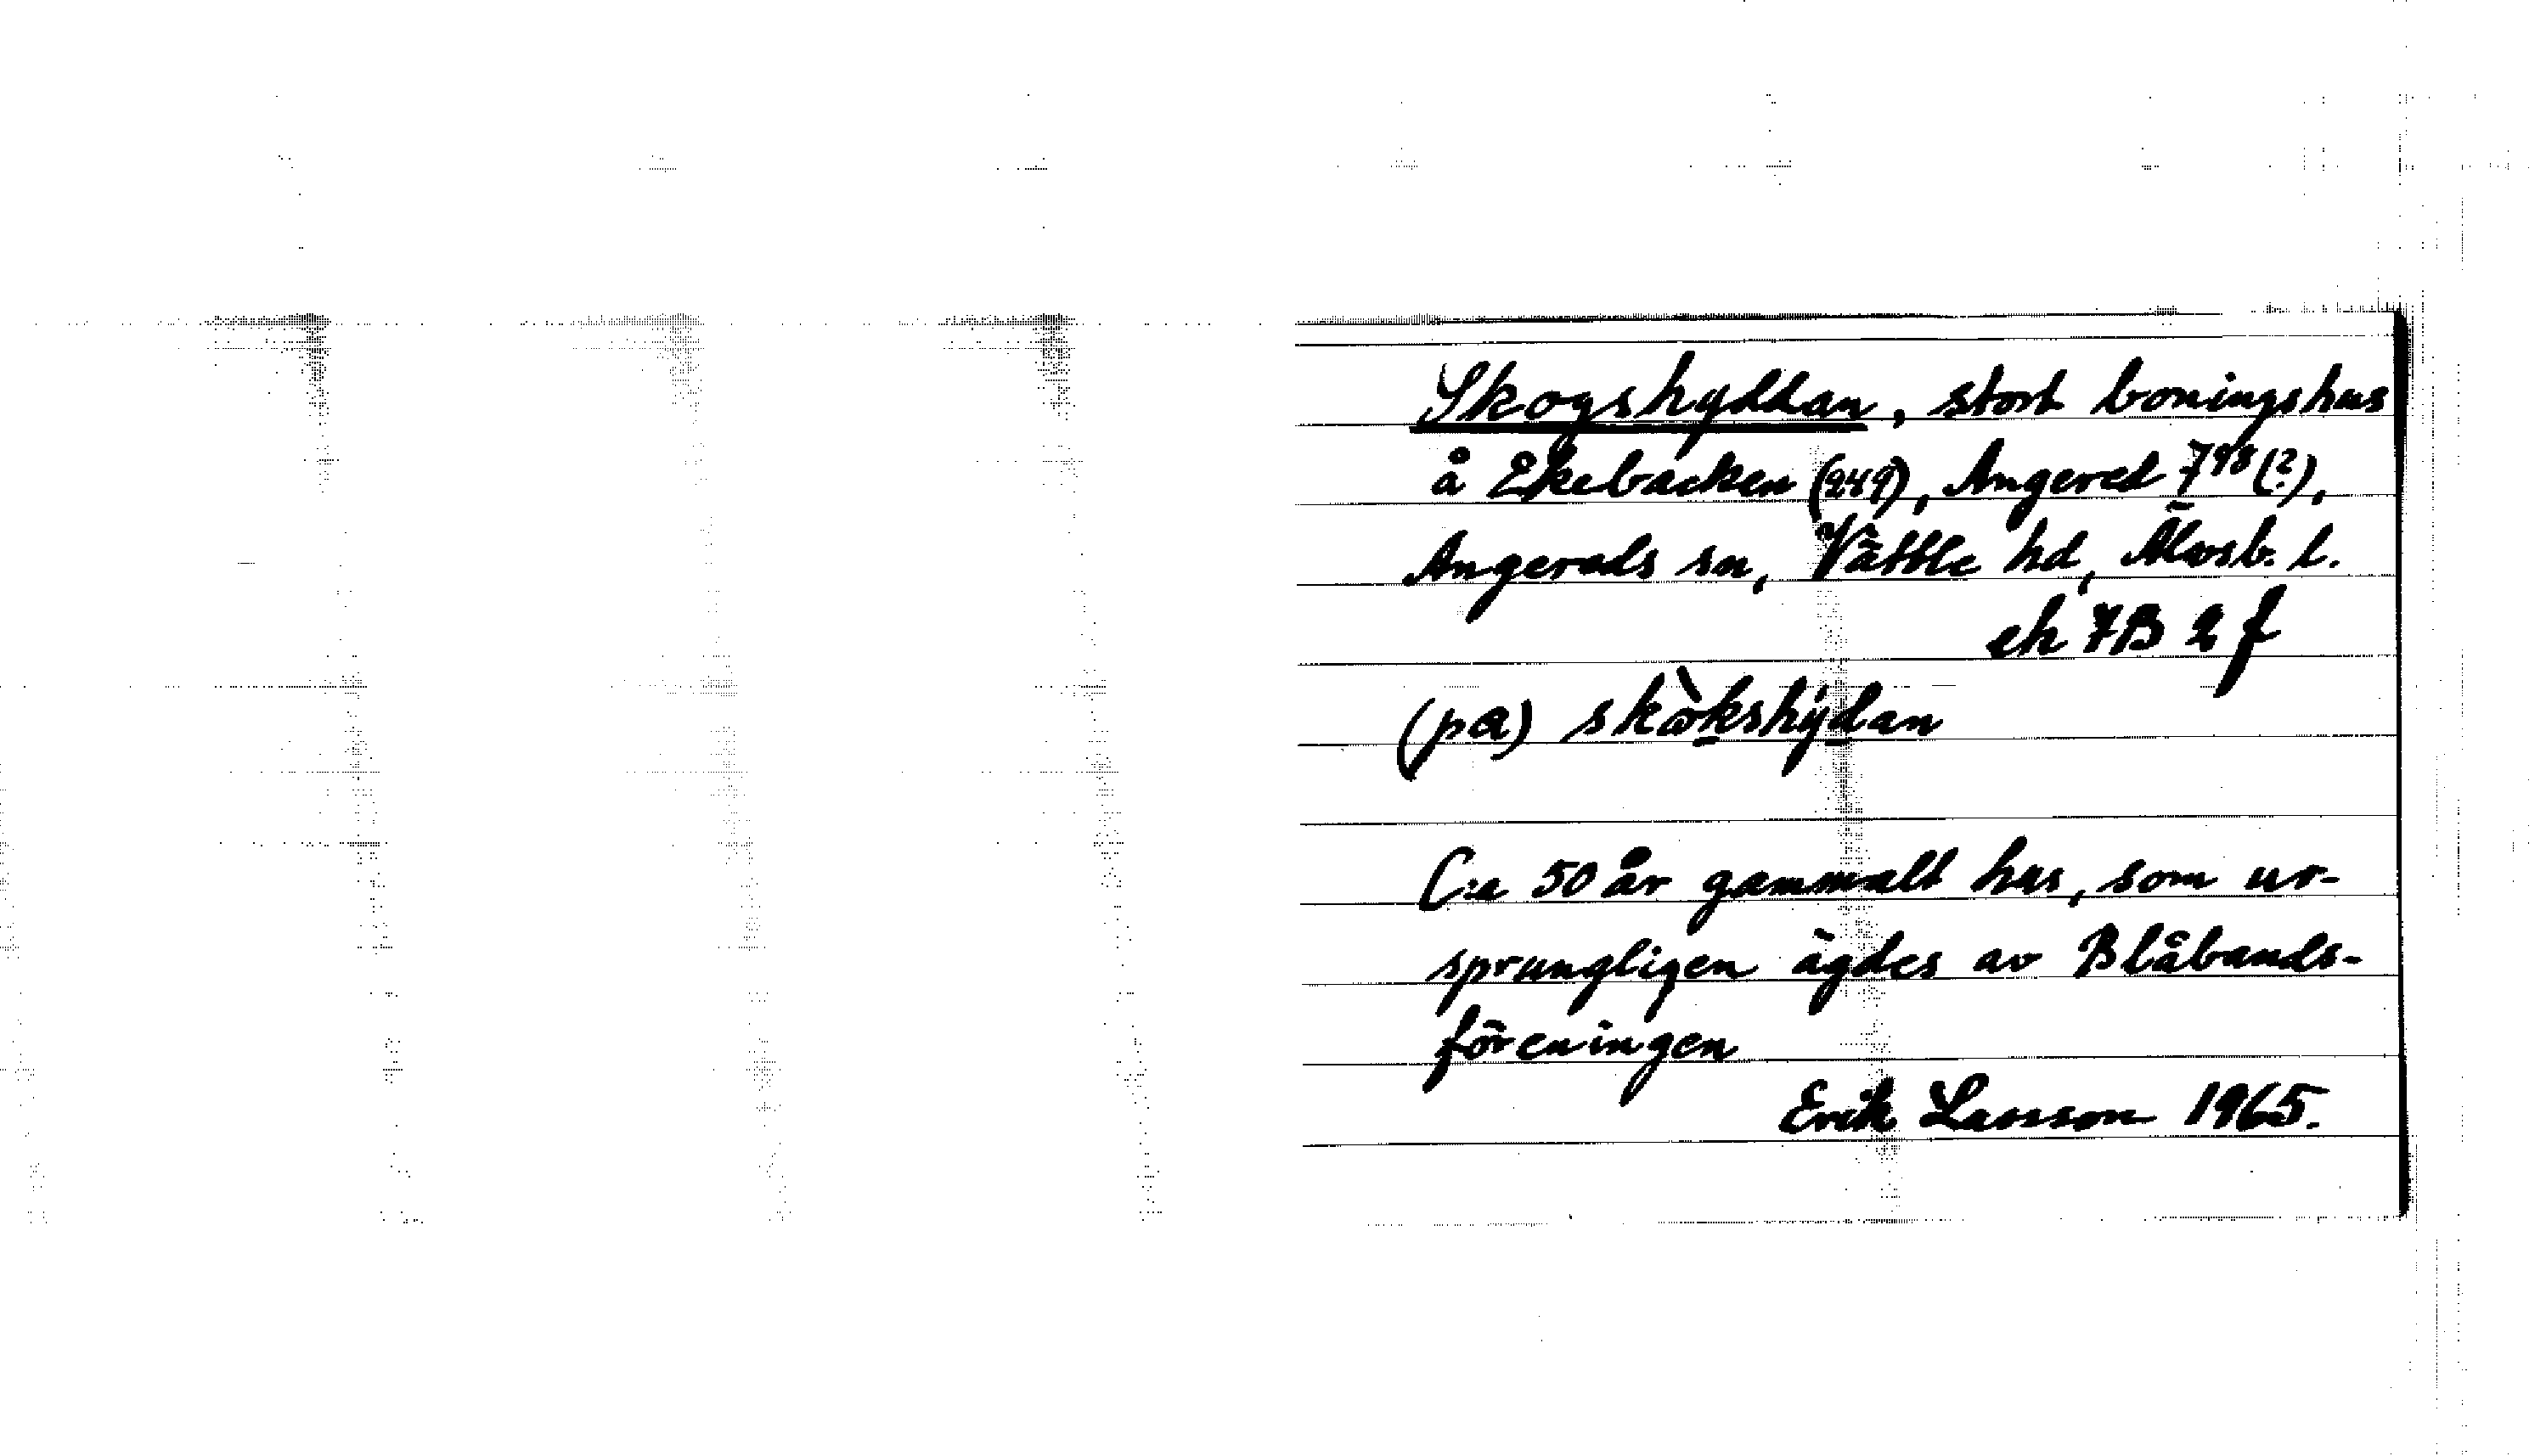 Skogshyddan, stort boningshus
å Ekebacken (249), Angered 7⁹⁸(?),
Angereds sn, Vättle hd, Älvsb. l.
ek 7B 2 f
(pa) skòkshýdan
C:a 50 år gammalt hus, som ur-
sprungligen ägdes av Blåbands-
föreningen
Erik Larsson 1965.